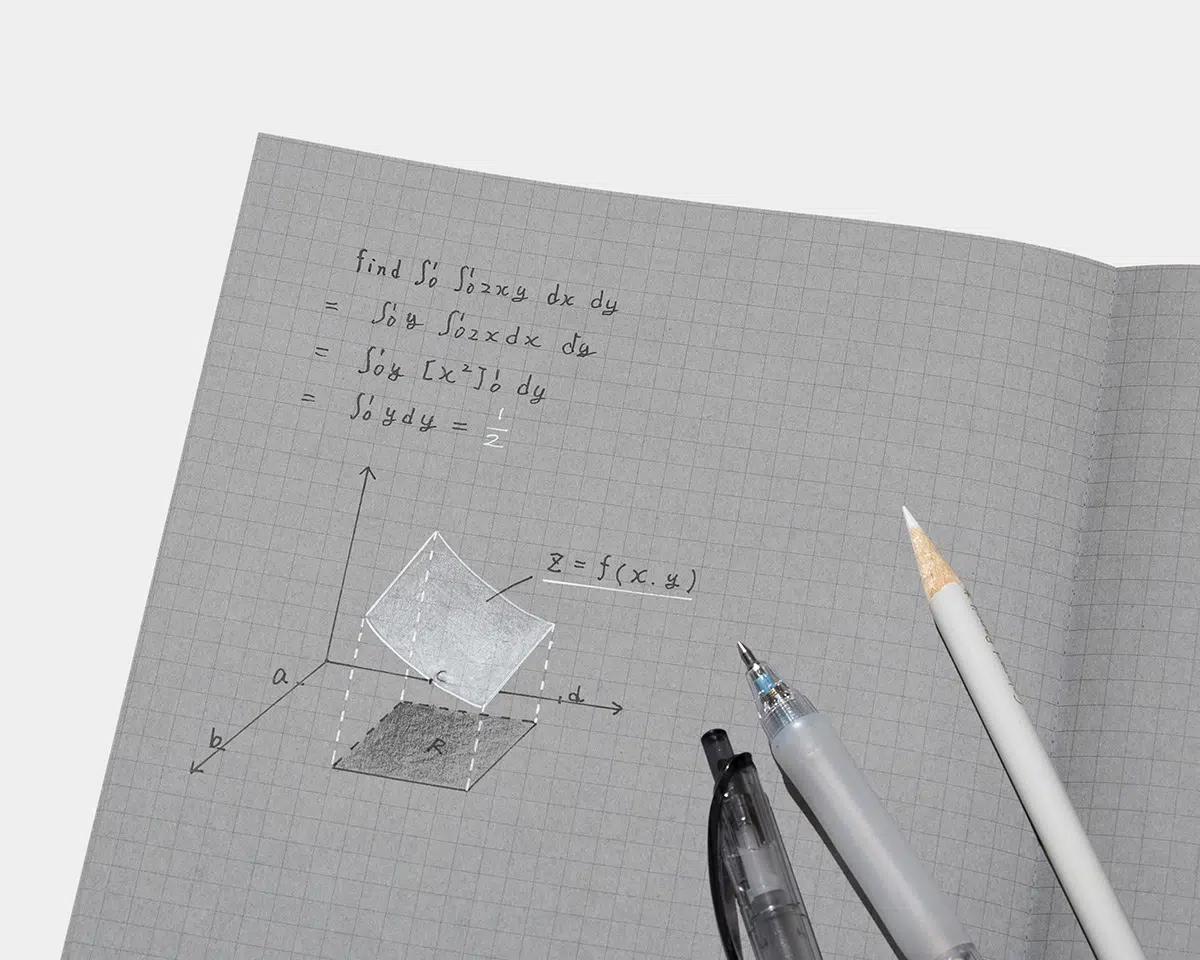 find ∫₀¹ ∫₀¹ 2xy dx dy
= ∫₀¹ y ∫₀¹ 2x dx dy
= ∫₀¹ y [x²]₀¹ dy
= ∫₀¹ y dy = 1/2
z = f(x.y)
a
c
d
b
R